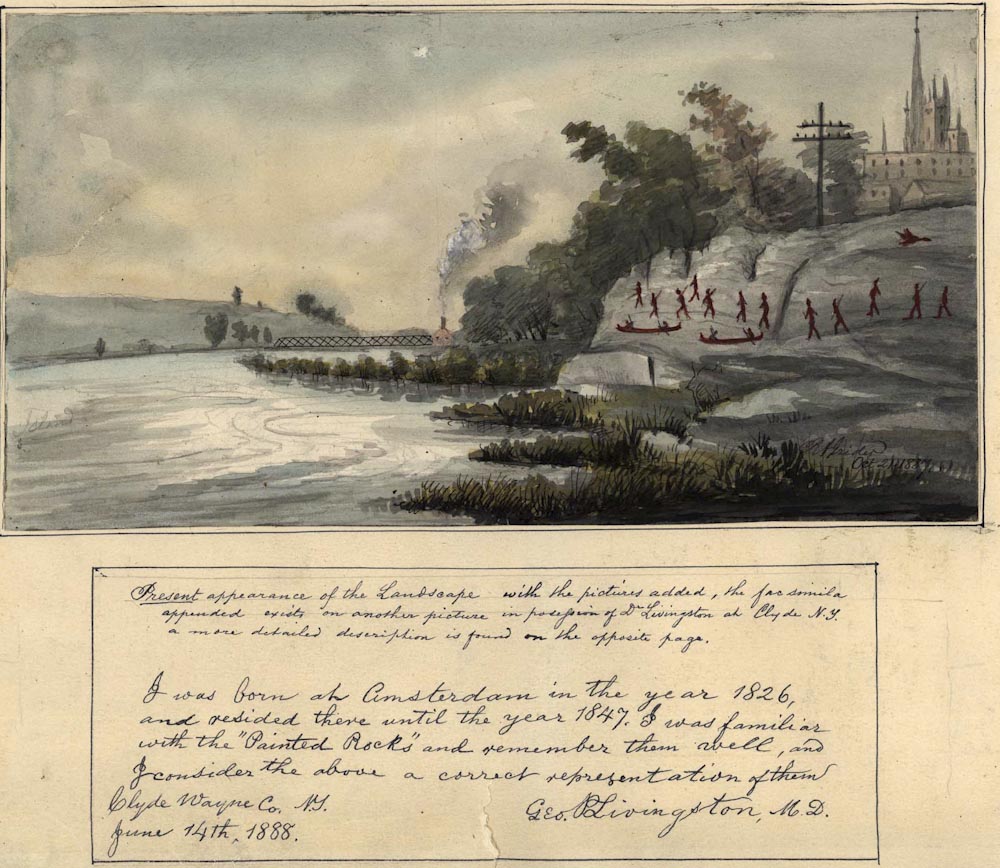 Island
R. A. Grider
Oct 21 1887
Present appearance of the Landscape with the pictures added, the fac simila
appended exists on another picture in posession of Dr Livingston at Clyde N.Y.
a more detailed description is found on the opposite page.
I was born at Amsterdam in the year 1826,
and resided there until the year 1847. I was familiar
with the "Painted Rocks" and remember them well, and
I consider the above a correct representation of them
Clyde Wayne Co. N.Y.
June 14th, 1888.
Geo. P Livingston, M.D.